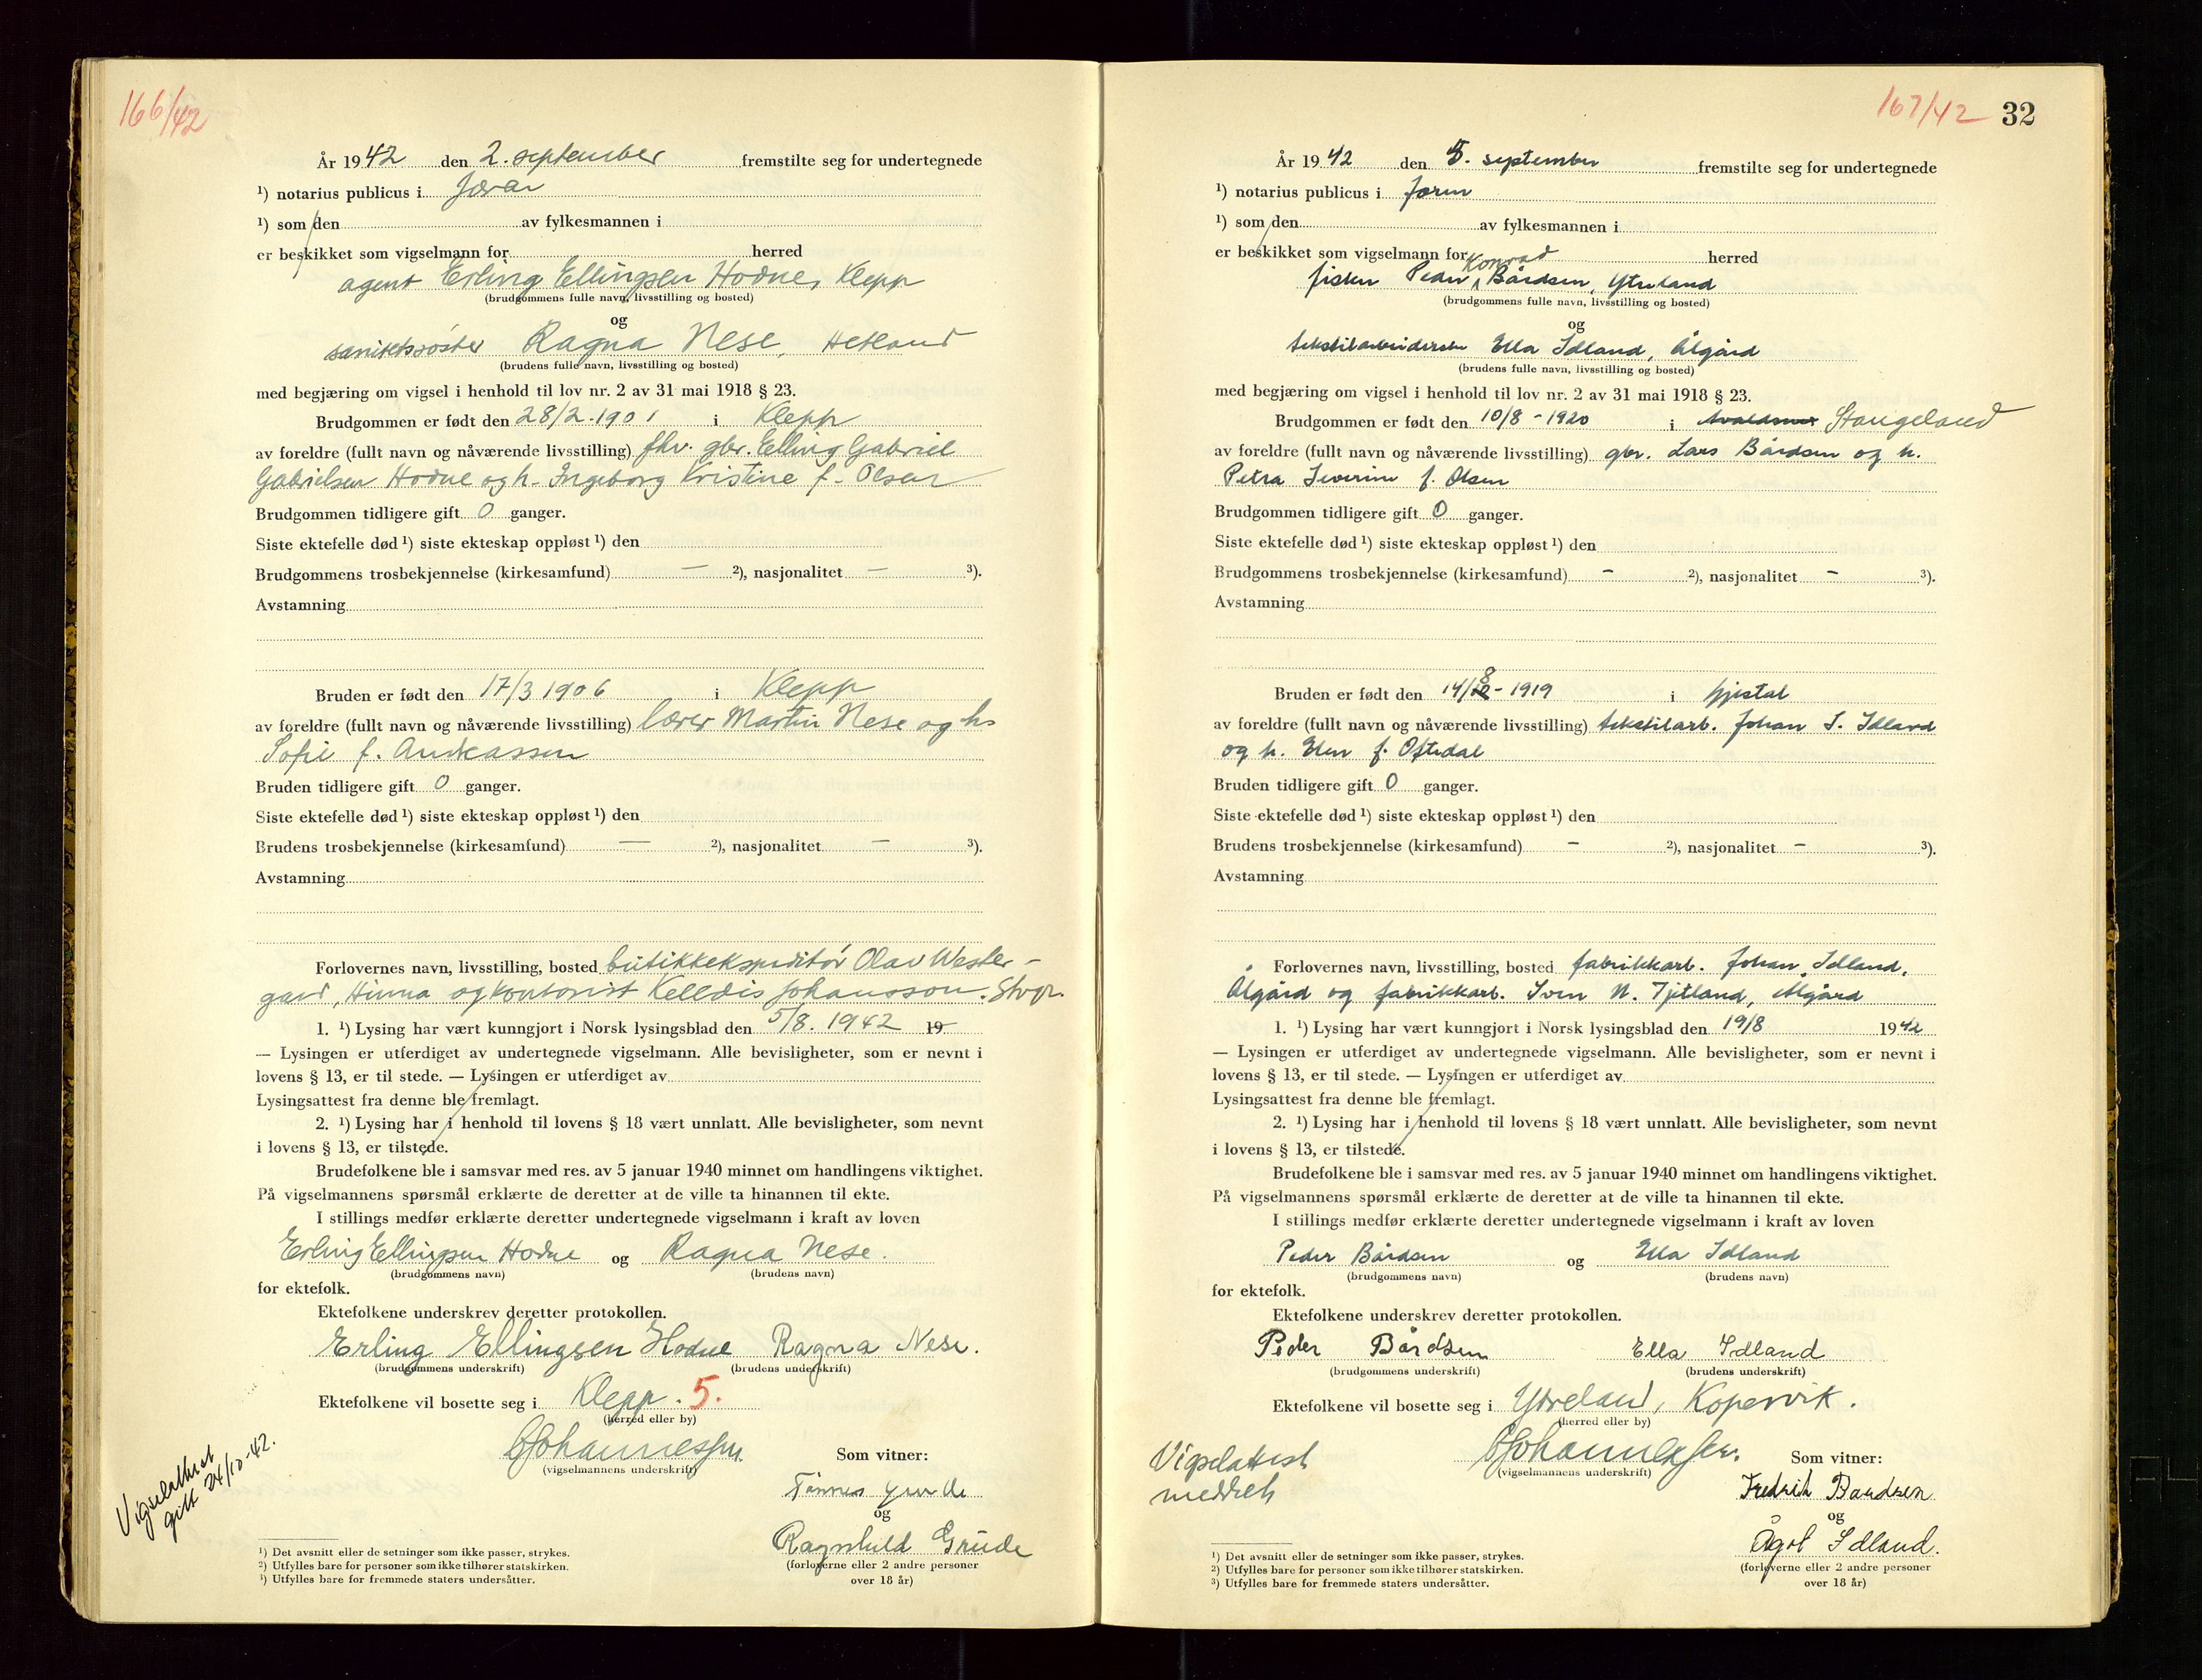 166/42
År 1942 den 2. september fremstilte seg for undertegnede
¹) notarius publicus i Jæren
¹) som den av fylkesmannen i
er beskikket som vigselmann for herred
agent Erling Ellingsen Hodne, Klepp
(brudgommens fulle navn, livsstilling og bosted)
og
sanitetssøster Ragna Nese, Hetland
(brudens fulle navn, livsstilling og bosted)
med begjæring om vigsel i henhold til lov nr. 2 av 31 mai 1918 § 23.
Brudgommen er født den 28/2-1901 i Klepp
av foreldre (fullt navn og nåværende livsstilling) fhv. gbr. Elling Gabriel
Gabrielsen Hodne og h. Ingeborg Kristine f. Olsen
Brudgommen tidligere gift 0 ganger.
Siste ektefelle død ¹) siste ekteskap oppløst ¹) den
Brudgommens trosbekjennelse (kirkesamfund) — ²), nasjonalitet — ³).
Avstamning
Bruden er født den 17/3 1906 i Klepp
av foreldre (fullt navn og nåværende livsstilling) lærer Martin Nese og h.
Sofie f. Andreassen
Bruden tidligere gift 0 ganger.
Siste ektefelle død ¹) siste ekteskap oppløst ¹) den
Brudens trosbekjennelse (kirkesamfund) — ²), nasjonalitet — ³).
Avstamning
Forlovernes navn, livsstilling, bosted butikkekspeditør Olav Wester-
gard, Hinna og kontorist Kelldis Johansson. Stvgr.
1. ¹) Lysing har vært kunngjort i Norsk lysingsblad den 5/8. 1942 19
— Lysingen er utferdiget av undertegnede vigselmann. Alle bevisligheter, som er nevnt i
lovens § 13, er til stede. — Lysingen er utferdiget av
Lysingsattest fra denne ble fremlagt.
2. ¹) Lysing har i henhold til lovens § 18 vært unnlatt. Alle bevisligheter, som nevnt
i lovens § 13, er tilstede.
Brudefolkene ble i samsvar med res. av 5 januar 1940 minnet om handlingens viktighet.
På vigselmannens spørsmål erklærte de deretter at de ville ta hinannen til ekte.
I stillings medfør erklærte deretter undertegnede vigselmann i kraft av loven
Erling Ellingsen Hodne og Ragna Nese.
(brudgommens navn) (brudens navn)
for ektefolk.
Ektefolkene underskrev deretter protokollen.
Erling Ellingsen Hodne Ragna Nese.
(brudgommens underskrift) (brudens underskrift)
Ektefolkene vil bosette seg i Klepp. 5.
(herred eller by)
Johannessen
(vigselmannens underskrift)
Som vitner:
Tønnes Grude
og
Ragnhild Grude
(forloverne eller 2 andre personer
over 18 år)
Vigselattest
gitt 24/10-42.
¹) Det avsnitt eller de setninger som ikke passer, strykes.
²) Utfylles bare for personer som ikke tilhører statskirken.
³) Utfylles bare for fremmede staters undersåtter.
167/42 32
År 1942 den 5. september fremstilte seg for undertegnede
¹) notarius publicus i Jæren
¹) som den av fylkesmannen i
er beskikket som vigselmann for herred
Konrad
fisker Peder Bårdsen, Ytreland
(brudgommens fulle navn, livsstilling og bosted)
og
tekstilarbeiderske Ella Idland, Ålgård
(brudens fulle navn, livsstilling og bosted)
med begjæring om vigsel i henhold til lov nr. 2 av 31 mai 1918 § 23.
Brudgommen er født den 10/8-1920 i Avaldsnes Stangeland
av foreldre (fullt navn og nåværende livsstilling) gbr. Lars Bårdsen og h.
Petra Severine f. Olsen
Brudgommen tidligere gift 0 ganger.
Siste ektefelle død ¹) siste ekteskap oppløst ¹) den
Brudgommens trosbekjennelse (kirkesamfund) - ²), nasjonalitet - ³).
Avstamning
Bruden er født den 14/8-1919 i Gjestal
av foreldre (fullt navn og nåværende livsstilling) tekstilarb. Johan S. Idland
og h. Elen f. Oftedal
Bruden tidligere gift 0 ganger.
Siste ektefelle død ¹) siste ekteskap oppløst ¹) den
Brudens trosbekjennelse (kirkesamfund) - ²), nasjonalitet - ³).
Avstamning
Forlovernes navn, livsstilling, bosted fabrikkarb. Johan Idland,
Ålgård og fabrikkarb. Sven N. Tjetland, Ålgård
1. ¹) Lysing har vært kunngjort i Norsk lysingsblad den 19/8 1942
— Lysingen er utferdiget av undertegnede vigselmann. Alle bevisligheter, som er nevnt i
lovens § 13, er til stede. — Lysingen er utferdiget av
Lysingsattest fra denne ble fremlagt.
2. ¹) Lysing har i henhold til lovens § 18 vært unnlatt. Alle bevisligheter, som nevnt
i lovens § 13, er tilstede.
Brudefolkene ble i samsvar med res. av 5 januar 1940 minnet om handlingens viktighet.
På vigselmannens spørsmål erklærte de deretter at de ville ta hinannen til ekte.
I stillings medfør erklærte deretter undertegnede vigselmann i kraft av loven
Peder Bårdsen og Ella Idland
(brudgommens navn) (brudens navn)
for ektefolk.
Ektefolkene underskrev deretter protokollen.
Peder Bårdsen Ella Idland
(brudgommens underskrift) (brudens underskrift)
Ektefolkene vil bosette seg i Ytreland, Kopervik.
(herred eller by)
Johannessen.
(vigselmannens underskrift)
Vigselattest
meddelt
Som vitner:
Fredrik Bårdsen
og
Ågot Idland.
(forloverne eller 2 andre personer
over 18 år)
¹) Det avsnitt eller de setninger som ikke passer, strykes.
²) Utfylles bare for personer som ikke tilhører statskirken.
³) Utfylles bare for fremmede staters undersåtter.